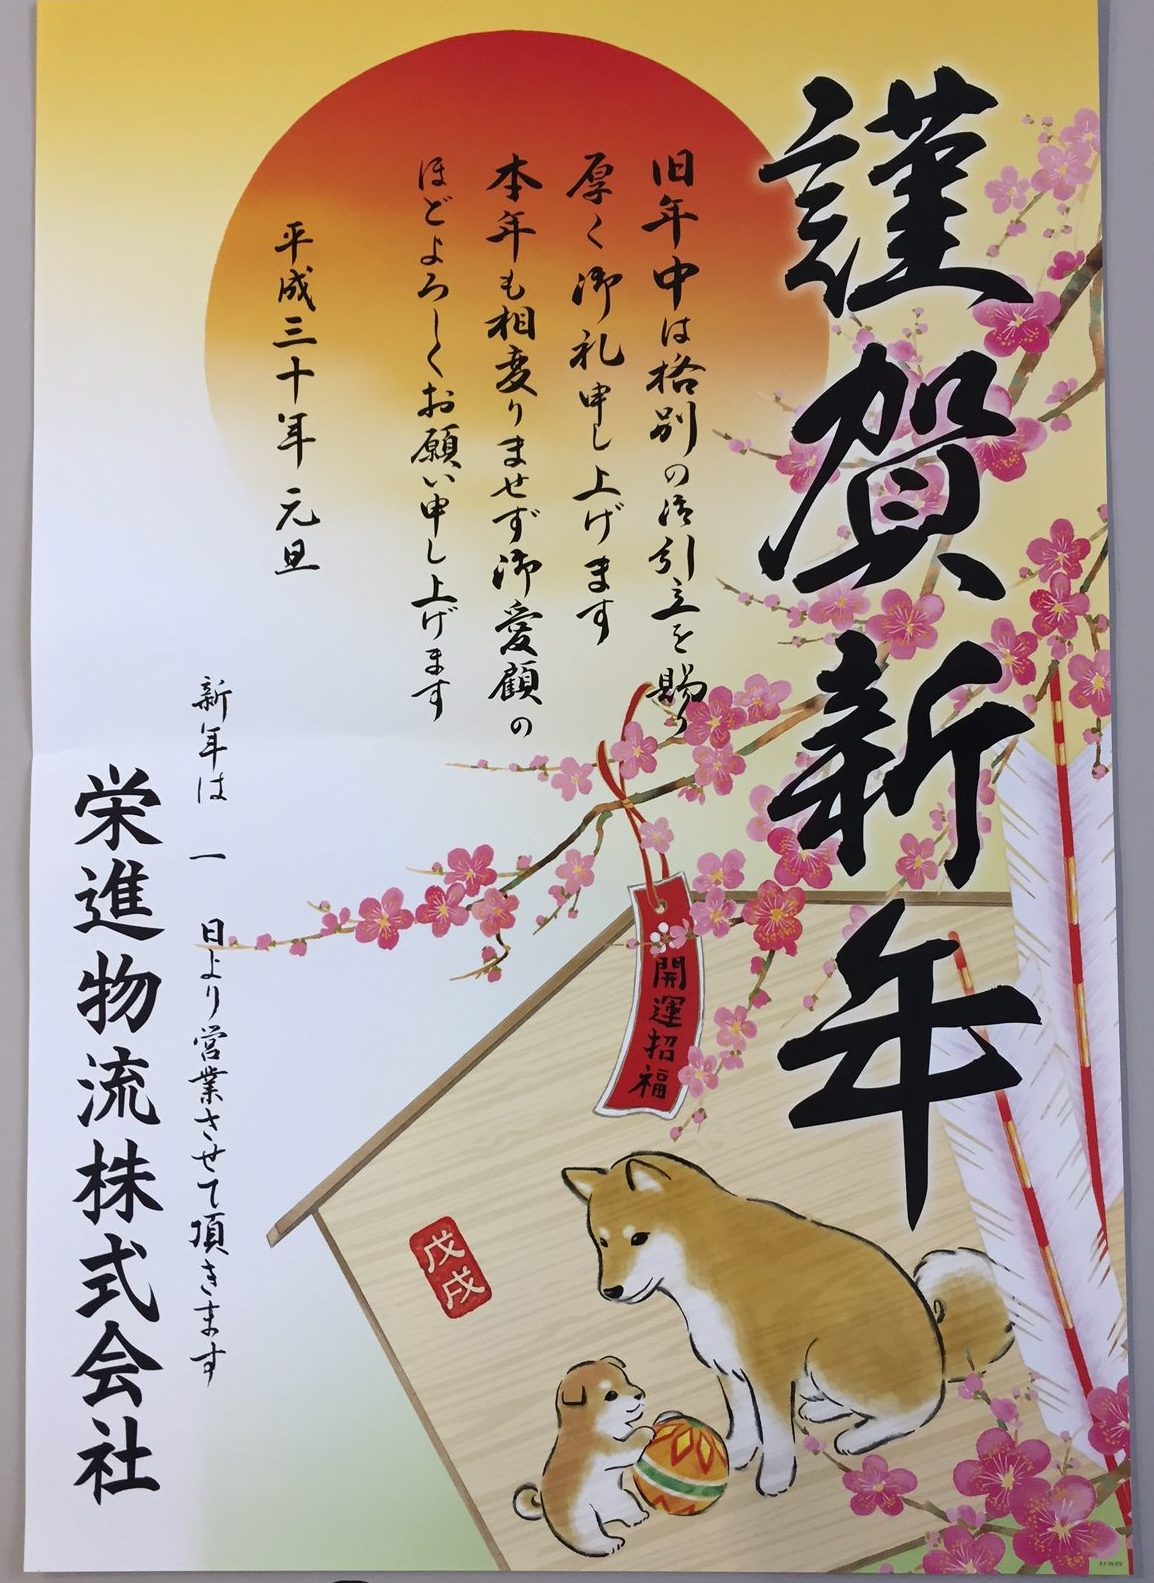 謹賀新年
旧年中は格別の御引立を賜り
厚く御礼申し上げます
本年も相変りませず御愛顧の
ほどよろしくお願い申し上げます
平成三十年 元旦
新年は 一 日より営業させて頂きます
栄進物流株式会社
開運招福
戊戌